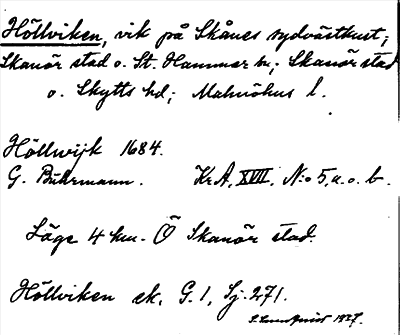 Höllviken, vik på Skånes sydvästkust;
Skanör stad o. St. Hammar sn; Skanör stad
o. Skytts hd; Malmöhus l.
Höllwijk 1684.
G. Buhrmann. Kr.A, XVII, N:o 5, a. o. b.
Läge 4 km. Ö Skanör stad.
Höllviken ek. G. 1, Sj. 271.
1927.